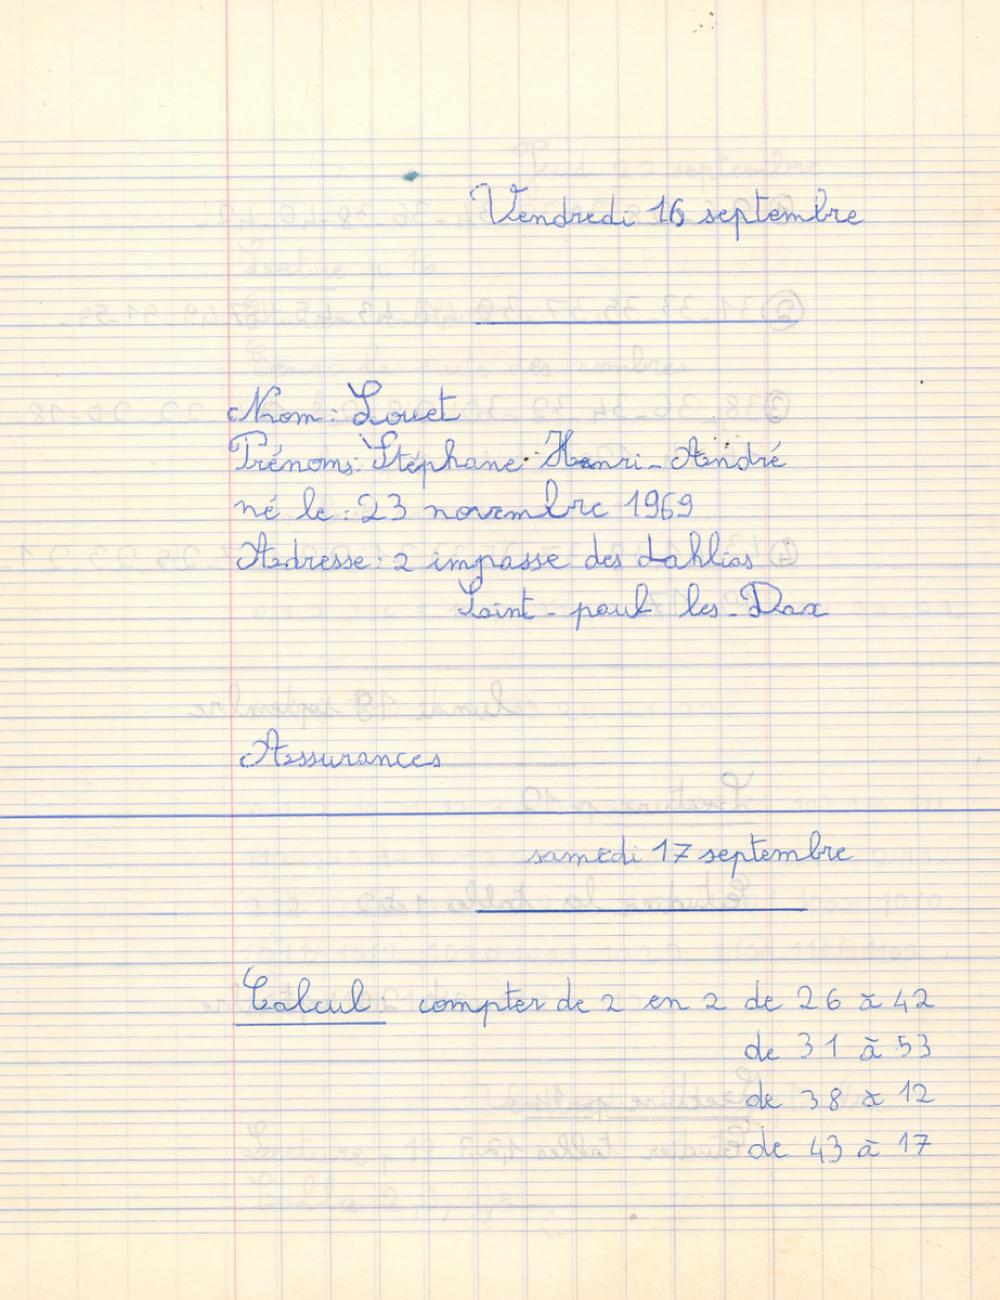 Vendredi 16 septembre
Nom : Louet
Prénoms : Stéphane Henri - André
né le : 23 novembre 1969
Adresse : 2 impasse des dahlias
Saint - paul les - Dax
Assurances
samedi 17 septembre
Calcul : compter de 2 en 2 de 26 à 42
de 31 à 53
de 38 à 12
de 43 à 17